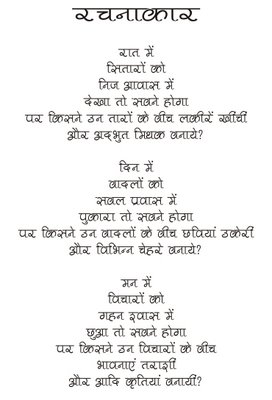 रचनाकार
रात में
सितारों को
निज आवास में
देखा तो सबने होगा
पर किसने उन तारों के बीच लकीरें खींचीं
और अद्भुत मिथक बनाये?
दिन में
बादलों को
सबल प्रवास में
पुकारा तो सबने होगा
पर किसने उन बादलों के बीच छवियां उकेरीं
और विभिन्न चेहरे बनाये?
मन में
विचारों को
गहन श्वास में
छुआ तो सबने होगा
पर किसने उन विचारों के बीच
भावनाएं तराशीं
और आदि कृतियां बनायीं?